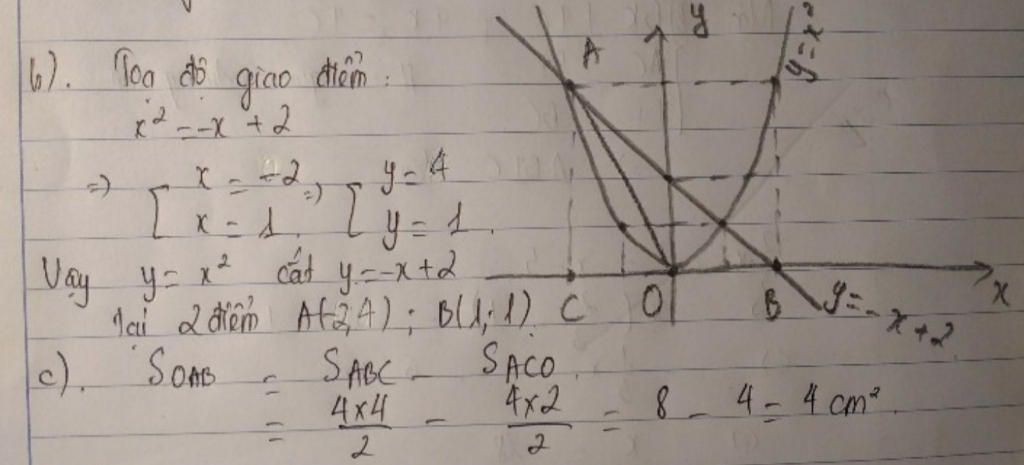 b). Toạ độ giao điểm :
x² = -x + 2
=> [ x = -2 => [ y = 4
x = 1. y = 1.
Vậy y = x² cắt y = -x + 2
Tại 2 điểm A(-2,4) ; B(1; 1)
c). SOAB = SABC - SACO.
= 4x4/2 - 4x2/2 = 8 - 4 = 4 cm².
y
A
y = x²
C O B x
y = -x + 2